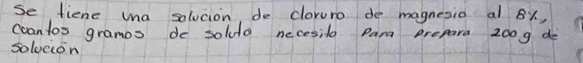 se tiene una solución de cloruro de magnesio al 8%,
cuantos gramos de soluto necesito para prepara 200g de
solución